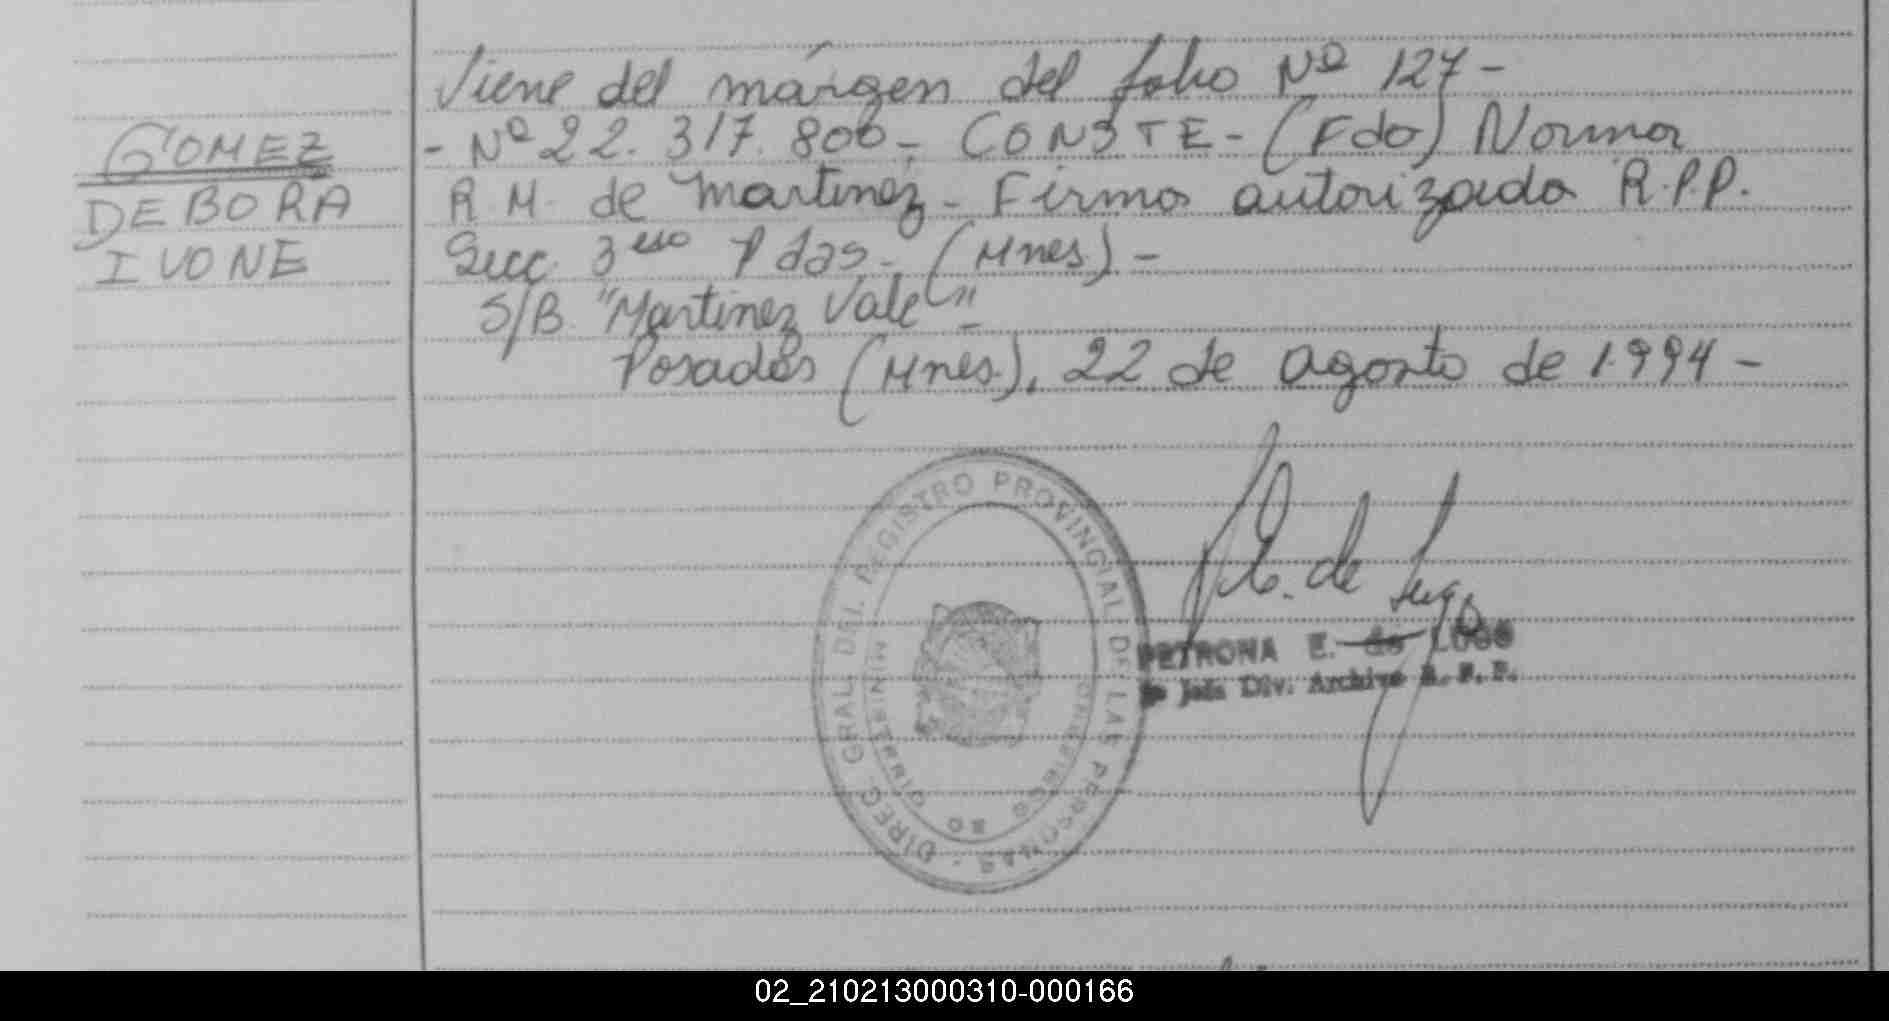 Viene del márgen del folio Nº 127-
GOMEZ
DEBORA
IVONE
- Nº 22.317.800- CONSTE- (Fdo) Norma
R.M. de Martinez- Firma autorizada R.P.P.
Secc. 3era Pdas- (Mnes)-
S/B. "Martinez Vale"-
Posadas (Mnes), 22 de agosto de 1.994-
DIREC. GRAL. DEL REGISTRO PROVINCIAL DE LAS PERSONAS
E. de Lugo
PETRONA E. de LUGO
Jefa Div. Archivo R.P.P.
02_210213000310-000166